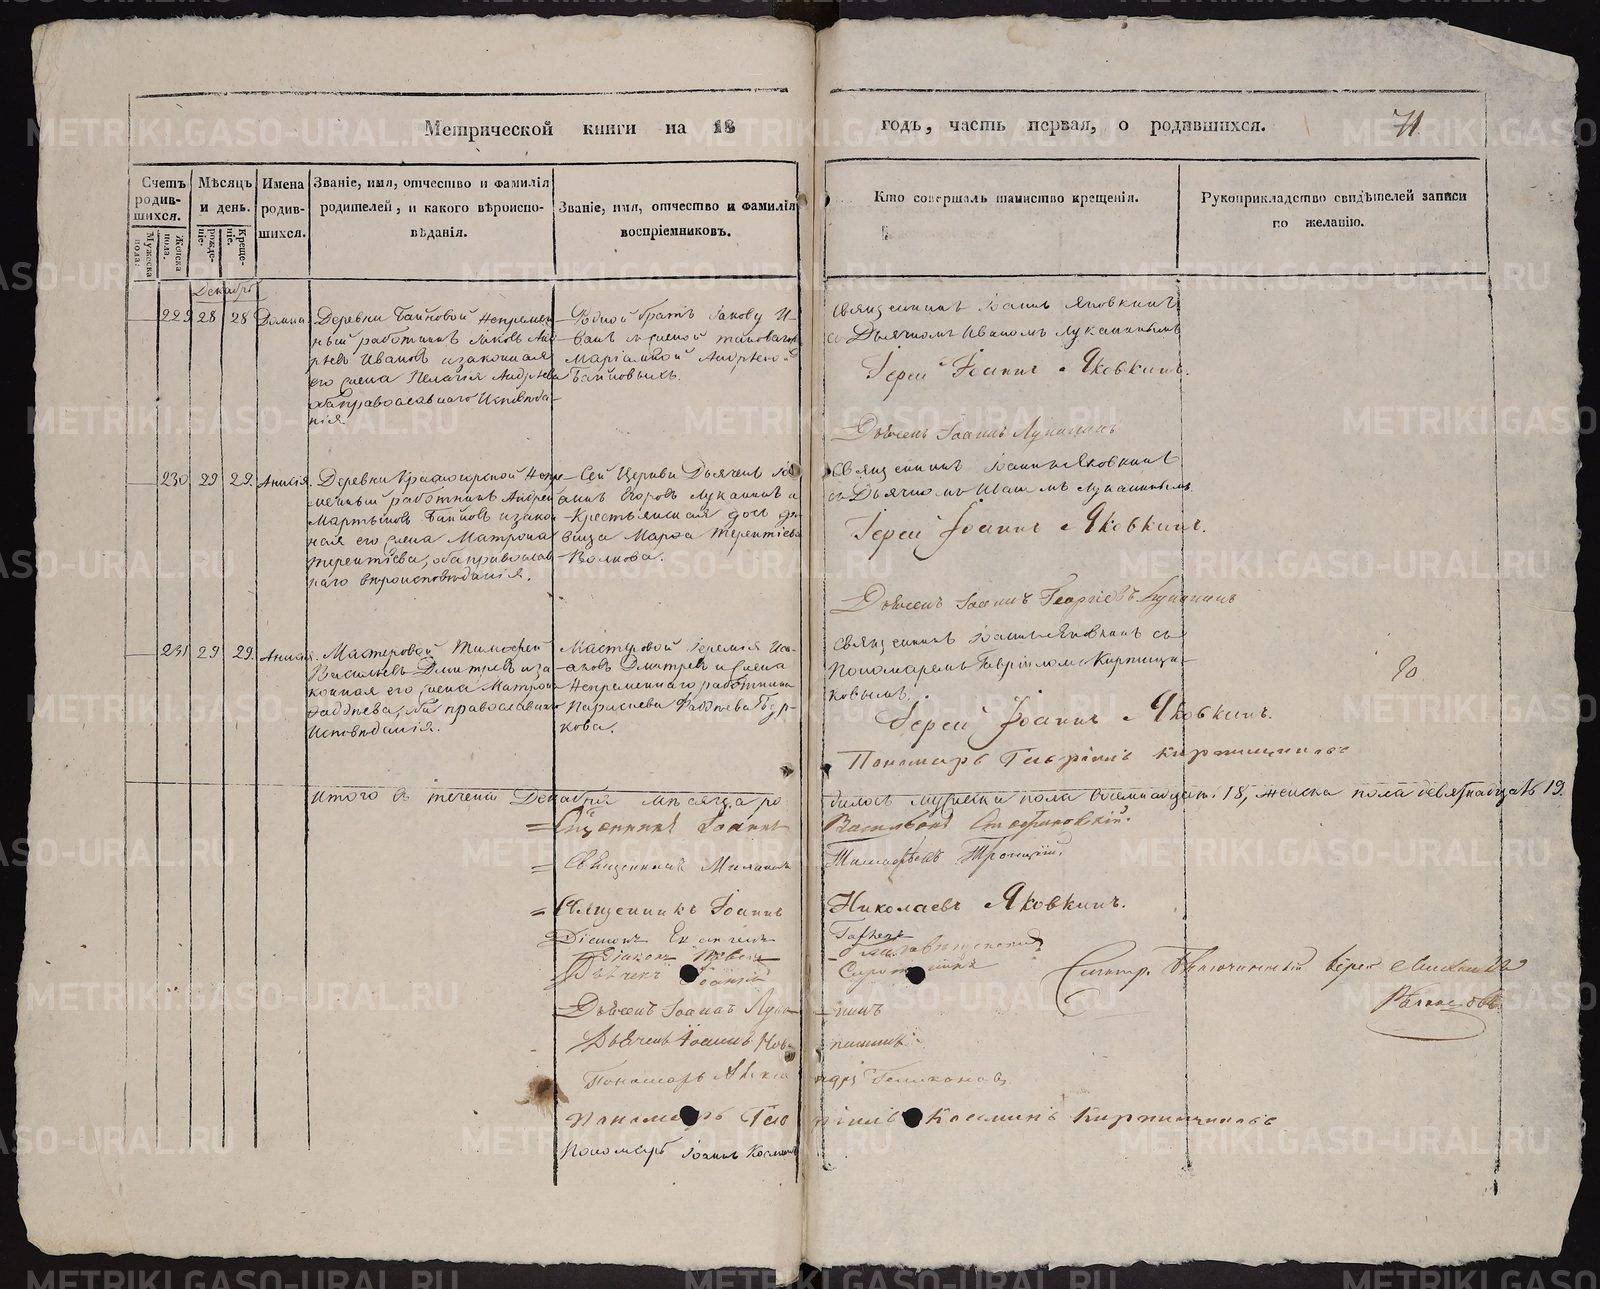 Метрической книги на 18
годъ, часть первая, о родившихся.
71
Счетъ родившихся.
Мужеска пола.
Женска пола.
Мѣсяцъ и день.
рожденіе.
крещеніе.
Имена родившихся.
Званіе, имя, отчество и фамилія родителей, и какого вѣроисповѣданія.
Званіе, имя, отчество и фамилія воспріемниковъ.
Кто совершалъ таинство крещенія.
Рукоприкладство свидѣтелей записи по желанію.
Декабрь
229 28 28 Домна
Деревни Байновой непремен
ный работникъ Іаковъ Анд
рѣевъ Ивановъ и законная
его жена Пелагія Андрѣева
оба православнаго исповѣда
нія
Родной братъ Іакову И
ванъ съ женой таковаго
Маріамной Андрѣевой
Байновыхъ.
Священникъ Іоаннъ Яковкинъ
съ Дьячкомъ Иваномъ Лукашинымъ
Іерей Іоаннъ Яковкинъ.
Дьячекъ Іоаннъ Лукашинъ
230 29 29. Анисія.
Деревни Красногорской Непре
менный работникъ Андрей
Мартыновъ Байновъ и закон
ная его жена Матрона
Терентіева, оба православ
наго вѣроисповѣданія.
Сей Церкви Дьячекъ Іо
аннъ Егоровъ Лукашинъ и
Крестьянская дочь де
вица Марфа Терентіева
Волкова.
Священникъ Іоаннъ Яковкинъ
съ Дьячкомъ Иваномъ Лукашинымъ
Іерей Іоаннъ Яковкинъ.
Дьячекъ Іоаннъ Георгіевъ Лукашинъ
231 29 29. Анисія.
Мастеровой Тимофей
Васильевъ Дмитревъ и за
конная его жена Матрона
Фаддѣева, оба православнаго
исповѣданія.
Мастеровой Іеремія Иса
аковъ Дмитревъ и жена
Непременнаго работника
Парасцева Фаддѣева Бур
кова.
Священникъ Іоаннъ Яковкинъ съ
Пономаремъ Гавріиломъ Кирпищи
ковымъ.
Іерей Іоаннъ Яковкинъ.
Пономарь Гавріилъ Кирпищиковъ
Итого въ теченіи Декабря мѣсяца ро
дилось мужеска пола восемнадцать 18, женска пола девятнадцать 19.
Священникъ Іоаннъ
Священникъ
Троицкій.
Священникъ Іоаннъ
Николаевъ Яковкинъ.
Діаконъ
Дьячекъ
Дьячекъ Іоаннъ Лука
шинъ
Дьячекъ Іоаннъ
Пономарь Алекса
ндръ
Пономарь Гав
ріилъ Косминъ Кирпищиковъ
Пономарь Іоаннъ Косминъ